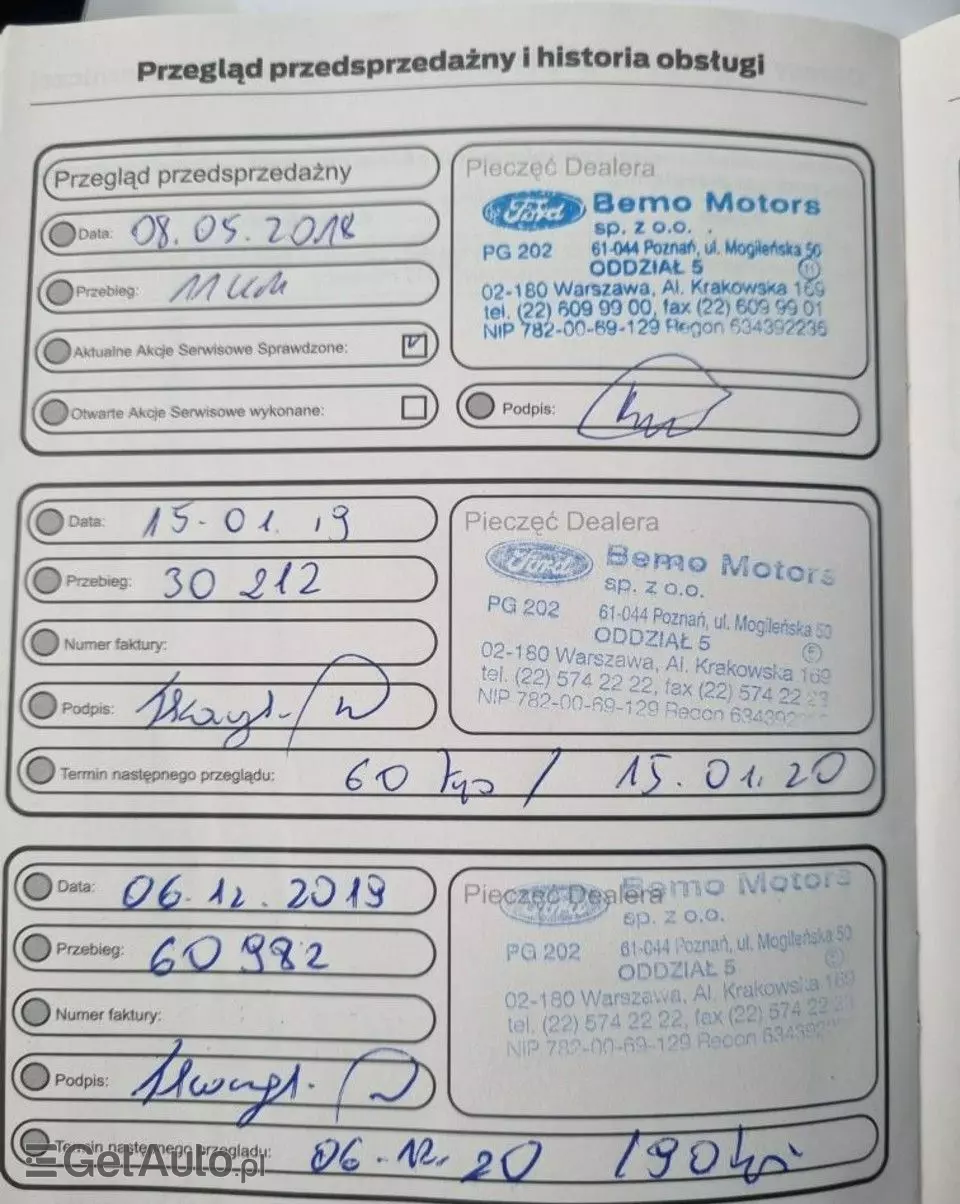 Przegląd przedsprzedażny i historia obsługi
Przegląd przedsprzedażny
Data: 08.05.2018
Przebieg: 11 km
Aktualne Akcje Serwisowe Sprawdzone:
Otwarte Akcje Serwisowe wykonane:
Pieczęć Dealera
Ford Bemo Motors
sp. z o.o.
PG 202 61-044 Poznań, ul. Mogileńska 50
ODDZIAŁ 5
02-180 Warszawa, Al. Krakowska 169
tel. (22) 609 99 00, fax (22) 609 99 01
NIP 782-00-69-129 Regon 634392236
Podpis:
Data: 15-01.19
Przebieg: 30 212
Numer faktury:
Podpis:
Pieczęć Dealera
Ford Bemo Motors
sp. z o.o.
PG 202 61-044 Poznań, ul. Mogileńska 50
ODDZIAŁ 5
02-180 Warszawa, Al. Krakowska 169
tel. (22) 574 22 22, fax (22) 574 22
NIP 782-00-69-129 Regon
Termin następnego przeglądu: 60 tys / 15.01.20
Data: 06.12.2019
Przebieg: 60 982
Numer faktury:
Podpis:
Pieczęć Dealera
Ford Bemo Motors
sp. z o.o.
PG 202 61-044 Poznań, ul. Mogileńska 50
ODDZIAŁ 5
02-180 Warszawa, Al. Krakowska 169
tel. (22) 574 22 22, fax (22) 574 22
NIP 782-00-69-129 Regon
Termin następnego przeglądu: 06.12.20 / 90 tys
GetAuto.pl